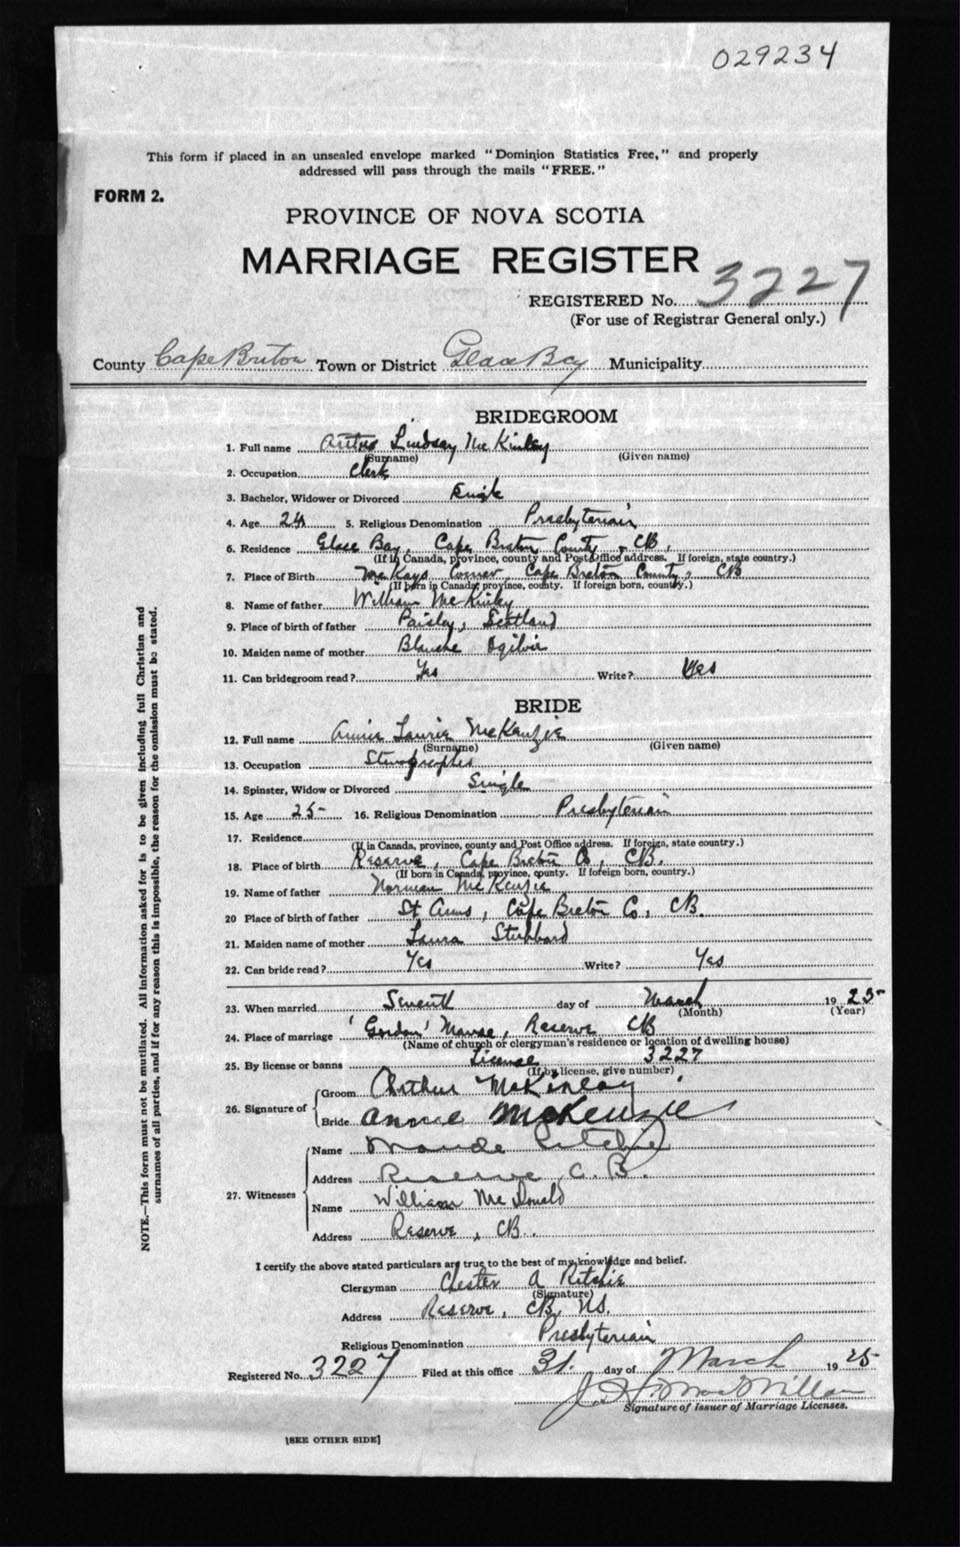 029234
This form if placed in an unsealed envelope marked "Dominion Statistics Free," and properly
addressed will pass through the mails "FREE."
FORM 2.
PROVINCE OF NOVA SCOTIA
MARRIAGE REGISTER
REGISTERED No. 3227
(For use of Registrar General only.)
County Cape Breton Town or District Glace Bay Municipality
BRIDEGROOM
1. Full name Arthur Lindsay McKinlay
(Surname) (Given name)
2. Occupation Clerk
3. Bachelor, Widower or Divorced Single
4. Age 24 5. Religious Denomination Presbyterian
6. Residence Glace Bay, Cape Breton County, CB,
(If in Canada, province, county and Post Office address. If foreign, state country.)
7. Place of Birth McKays Corner, Cape Breton County, CB
(If born in Canada, province, county. If foreign born, country.)
8. Name of father William McKinlay
9. Place of birth of father Paisley, Scotland
10. Maiden name of mother Blanche Ogilvie
11. Can bridegroom read? Yes Write? Yes
BRIDE
12. Full name Annie Laurie McKenzie
(Surname) (Given name)
13. Occupation Stenographer
14. Spinster, Widow or Divorced Single
15. Age 25 16. Religious Denomination Presbyterian
17. Residence
(If in Canada, province, county and Post Office address. If foreign, state country.)
18. Place of birth Reserve, Cape Breton Co, CB.
(If born in Canada, province, county. If foreign born, country.)
19. Name of father Norman McKenzie
20 Place of birth of father St Anns, Cape Breton Co, CB.
21. Maiden name of mother Laura Stubbard
22. Can bride read? Yes Write? Yes
23. When married Seventh day of March 1925
(Month) (Year)
24. Place of marriage 'Gordon' Manse, Reserve CB
(Name of church or clergyman's residence or location of dwelling house)
25. By license or banns License 3227
(If by license, give number)
26. Signature of Groom Arthur McKinlay
Bride Annie McKenzie
27. Witnesses Name Maude Ritchie
Address Reserve C.B.
Name William McDonald
Address Reserve, CB.
I certify the above stated particulars are true to the best of my knowledge and belief.
Clergyman Chester A Ritchie
(Signature)
Address Reserve, CB, NS.
Religious Denomination Presbyterian
Registered No. 3227 Filed at this office 31. day of March 1925
J. H. MacMillan
Signature of issuer of Marriage Licenses.
[SEE OTHER SIDE]
NOTE.—This form must not be mutilated. All information asked for is to be given including full Christian and
surnames of all parties, and if for any reason this is impossible, the reason for the omission must be stated.